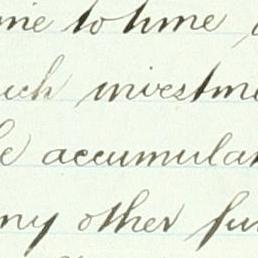 time to time
such investme
he accumulat
any other fu